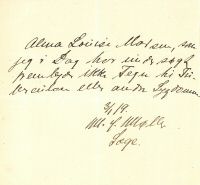 Alma Louise Madsen, som
jeg i Dag har undersøgt
frembyder ikke Tegn til Tu-
berculose eller anden Sygdom
3/1 19.
M. S. Møller
Læge.